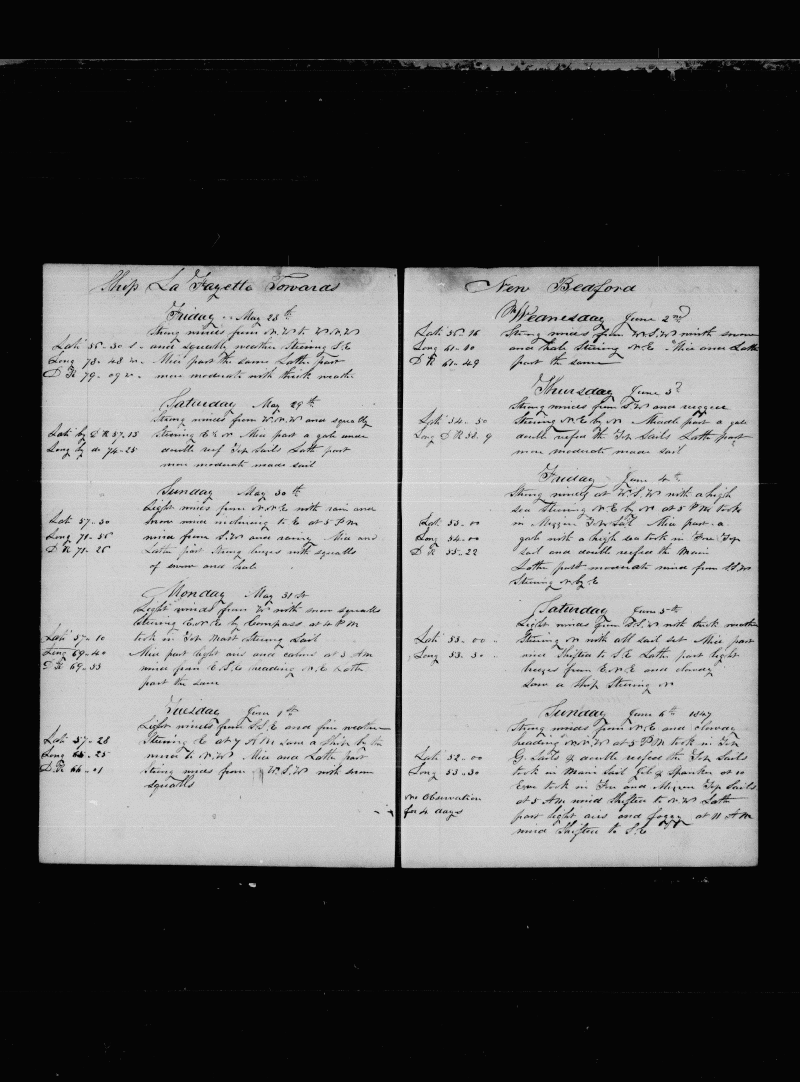 Ship La Fayette Towards
Friday May 28th
Strong winds from N.W to W.N.W
Lat 56-30 S and squally weather Steering S.E
Long 78-48 W Mid part the same Latter part
D R 79-09 W more moderate with thick weath
Saturday May 29th
Strong winds from W.N.W and squally
Lat by D R 57-15 Steering E by N Mid part a gale under
Long by do 74-25 double reef Top Sails Latt part
more moderate made sail
Sunday May 30th
Light winds from N.N.E with rain and
Lat 57-30 snow wind inclining to E at 5 P M
Long 71-56 wind from S.W and snowy Mid and
D R 71-26 Latter part strong breezes with squalls
of snow and hail
Monday May 31st
Light winds from W with snow squalls
Steering E.N.E by Compass at 4 P M
Lat 57-10 took in Top Mast Steering Sail
Long 69-40 Mid part light airs and calms at 3 A M
D R 69-53 wind from E.S.E heading N.E Latter
part the same
Tuesday June 1st
Light winds from S.S.E and fine weather
Lat 57-28 Steering E at 7 A M saw a Ship by the
Long 65-25 wind to N.W Mid and Latt part
D R 66-01 strong winds from W.S.W with snow
squalls
New Bedford
Wednesday June 2nd
Lat 56-16 Strong winds from W.S.W with snow
Long 61-10 and hail Steering N.E Mid and Latt
D R 61-49 part the same
Thursday June 3d
Strong winds from S.W and rugged
Lat 54-50 Steering N.E by N Middle part a gale
Long D R 58-9 double reefed the Top Sails Latt part
more moderate made sail
Friday June 4th
Strong winds at W.S.W with a high
sea Steering N.E by N at 5 P M took
Lat 53-00 in Mizzen Top Sail Mid part a
Long 54-00 gale with a high sea took in Fore Top
D R 55-22 sail and double reefed the Main
Latter part moderate wind from S.S.W
Steering N by E
Saturday June 5th
Light winds from W.S.W with thick weather
Lat 53-00 Steering N with all sail set Mid part
Long 53-30 wind Shifted to S.E Latt part light
breezes from E.N.E and cloudy
Saw a Ship Steering N
Sunday June 6th 1847
Strong winds from N.E and cloudy
heading N.N.W at 3 P.M took in Top
Lat 52-00 G Sails & double reefed the Top Sails
Long 53-30 took in Main Sail Jib & Spanker at 10
took in Fore and Mizzen Top Sails
no Observation at 5 A M wind Shifted to N.W Latt
for 4 days part light airs and foggy at 11 A M
wind Shifted to S.E